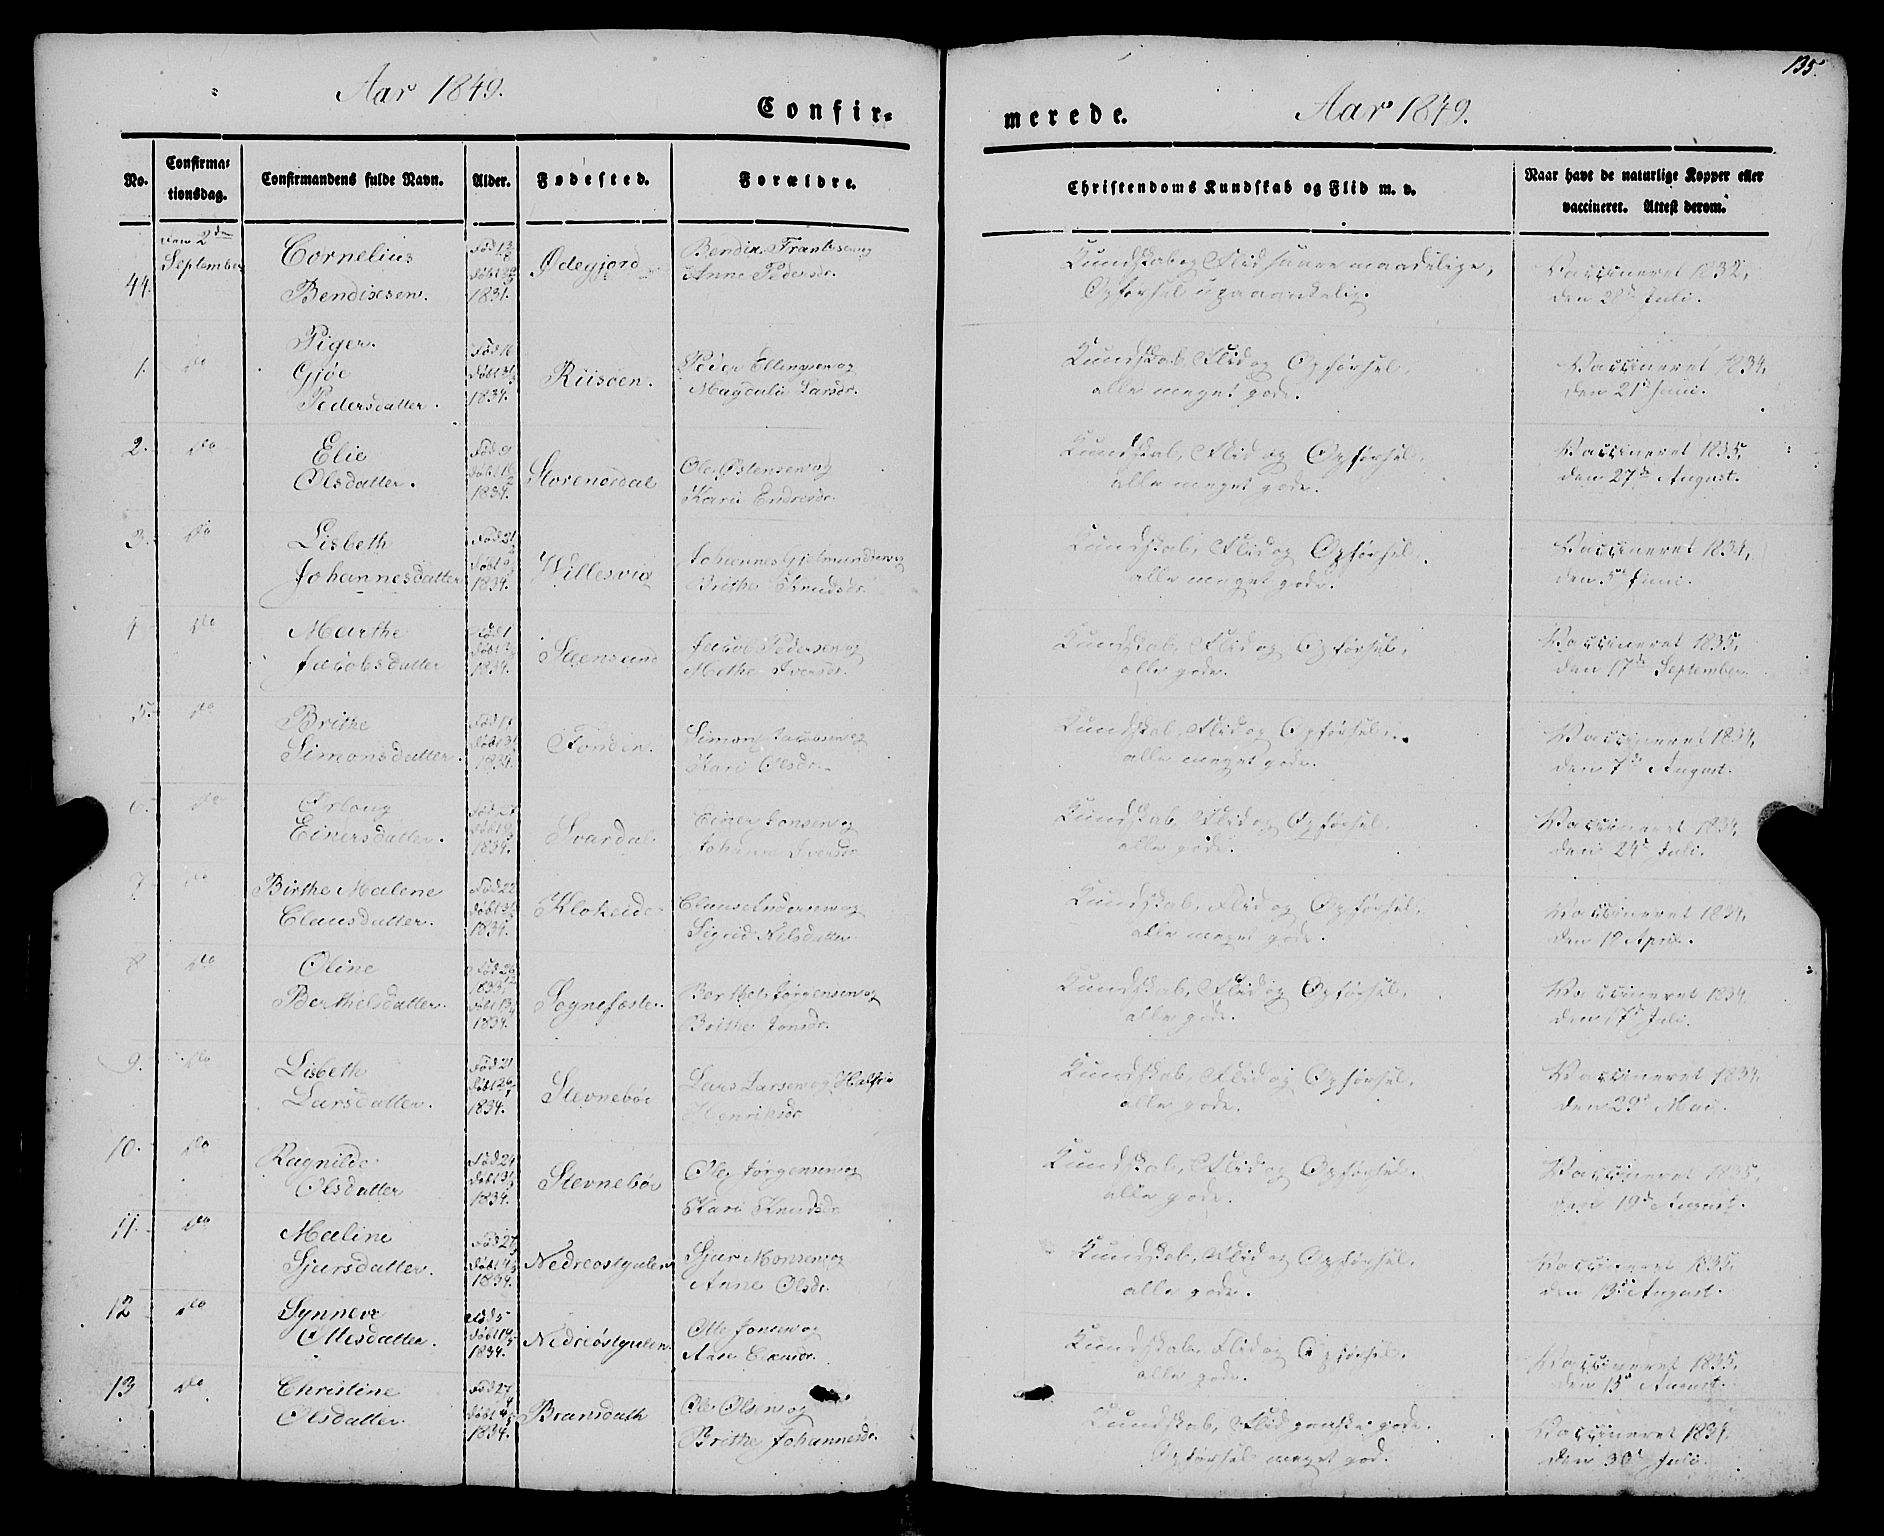 Aar 1849.
Confir-
merede.
Aar 1849.
135.
No.
Confirma-
tionsdag.
Confirmandens fulde Navn.
Alder.
Fødested.
Forældre.
Christendoms Kundskab og Flid m. v.
Naar havt de naturlige Kopper eller
vaccineret. Attest derom.
44.
den 2den
September
Cornelius
Bendixsen.
1831.
Ødegjord
Bendix Frantssen og
Anne Pedersdr.
Kundskab og Flid svare maadelige,
Opførsel upaaankelig.
Vaccineret 1832,
den 28de Juli.
Piger.
1.
do
Gjøe
Pedersdatter.
Fød 16
Døbt 31/3
1834.
Risøen.
Peder Ellingsen og
Magdali Larsdr.
Kundskab, Flid og Opførsel,
alle meget gode.
Vaccineret 1834,
den 21de Juni.
2.
do
Elie
Olsdatter.
Fød 9
Døbt 16/2
1834.
Storenordal
Ole Østensen og
Kari Endresdr.
Kundskab, Flid og Opførsel,
alle meget gode.
Vaccineret 1835,
den 27de August.
3.
do
Lisbeth
Johannesdatter
1834.
Willesvig
Johannes Gjelmundsen og
Brithe Knudsdr.
Kundskab, Flid og Opførsel,
alle meget gode.
Vaccineret 1834,
den 5te Juni.
4
do
Marthe
Jacobsdatter
Fød 1
1834.
Steensund
Jacob Pedersen og
Methe Iversdr.
Kundskab, Flid og Opførsel,
alle gode.
Vaccineret 1835,
den 17de September.
5.
do
Brithe
Simonsdatter.
1834.
Fondin.
Simon Jacobsen og
Kari Olsdr.
Kundskab, Flid og Opførsel,
alle meget gode.
Vaccineret 1834,
den 7de August.
6.
do
Einersdatter.
1834.
Svardal.
Einer Jonsen og
Johanne Iversdr
Kundskab, Flid og Opførsel,
alle gode.
Vaccineret 1834,
den 24de Juli.
7.
do
Birthe Malene
Clausdatter.
Fød 22
Døbt 31/3
1834.
Klokeide
Claus Andersen og
Sigrid Nilsdatter
Kundskab, Flid og Opførsel,
alle meget gode.
Vaccineret 1834,
den 18 April.
8
do
Oline
Berthelsdatter.
Fød 26/12
1833,
1834.
Sognefæste.
Berthel Jørgensen og
Brithe Jonsdr.
Kundskab, Flid og Opførsel,
alle gode.
Vaccineret 1834.
den 17de Juli.
9.
do
Lisbeth
Larsdatter.
Fød 21
Døbt 26/1
1834.
Stevnebøe
Lars Larsen og
Henriksdr
Kundskab, Flid og Opførsel,
alle gode.
Vaccineret 1834,
den 29de Mai.
10.
do
Ragnilde
Olsdatter
Fød 24
Døbt 31/3
1834.
Stevnebøe
Ole Jørgensen og
Kari Knudsdr
Kundskab, Flid og Opførsel,
alle gode.
Vaccineret 1835,
den 19de August.
11.
do
Maline
Sjursdatter.
Fød 27
1834.
Nedreøstgulen
Sjur Monsen og
Anne Olsdr.
Kundskab, Flid og Opførsel,
alle gode.
Vaccineret 1835,
den 13de August.
12
do
Synneve
Ottesdatter.
Fød 5
1834.
Nedreøstgulen
Otte Jonsen og
Kundskab, Flid og Opførsel,
alle gode.
Vaccineret 1835,
den 13de August.
13
do
Christine
Olsdatter
Fød 27/4
1834.
Bransdath
Ole Olsen og
Brithe Johannesdr.
Kundskab, Flid ganske gode.
Opførsel meget god.
Vaccineret 1834.
den 30te Juli.